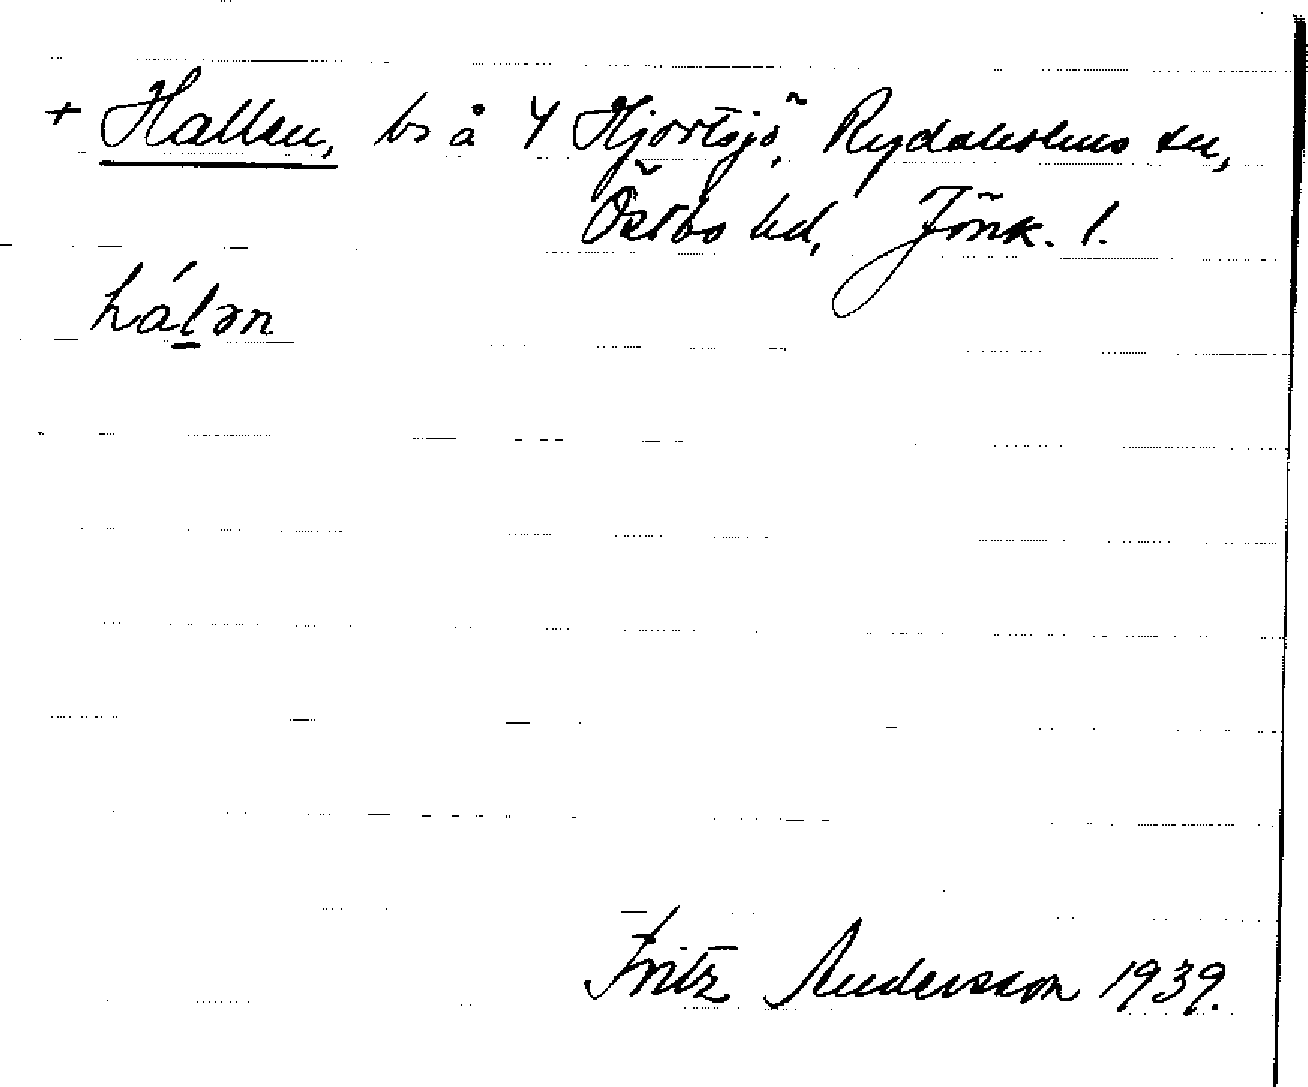 + Hallen, bs å 4 Hjortsjö, Rydaholms sn,
Östbo hd, Jönk. l.
hálən
Fritz Andersson 1939.